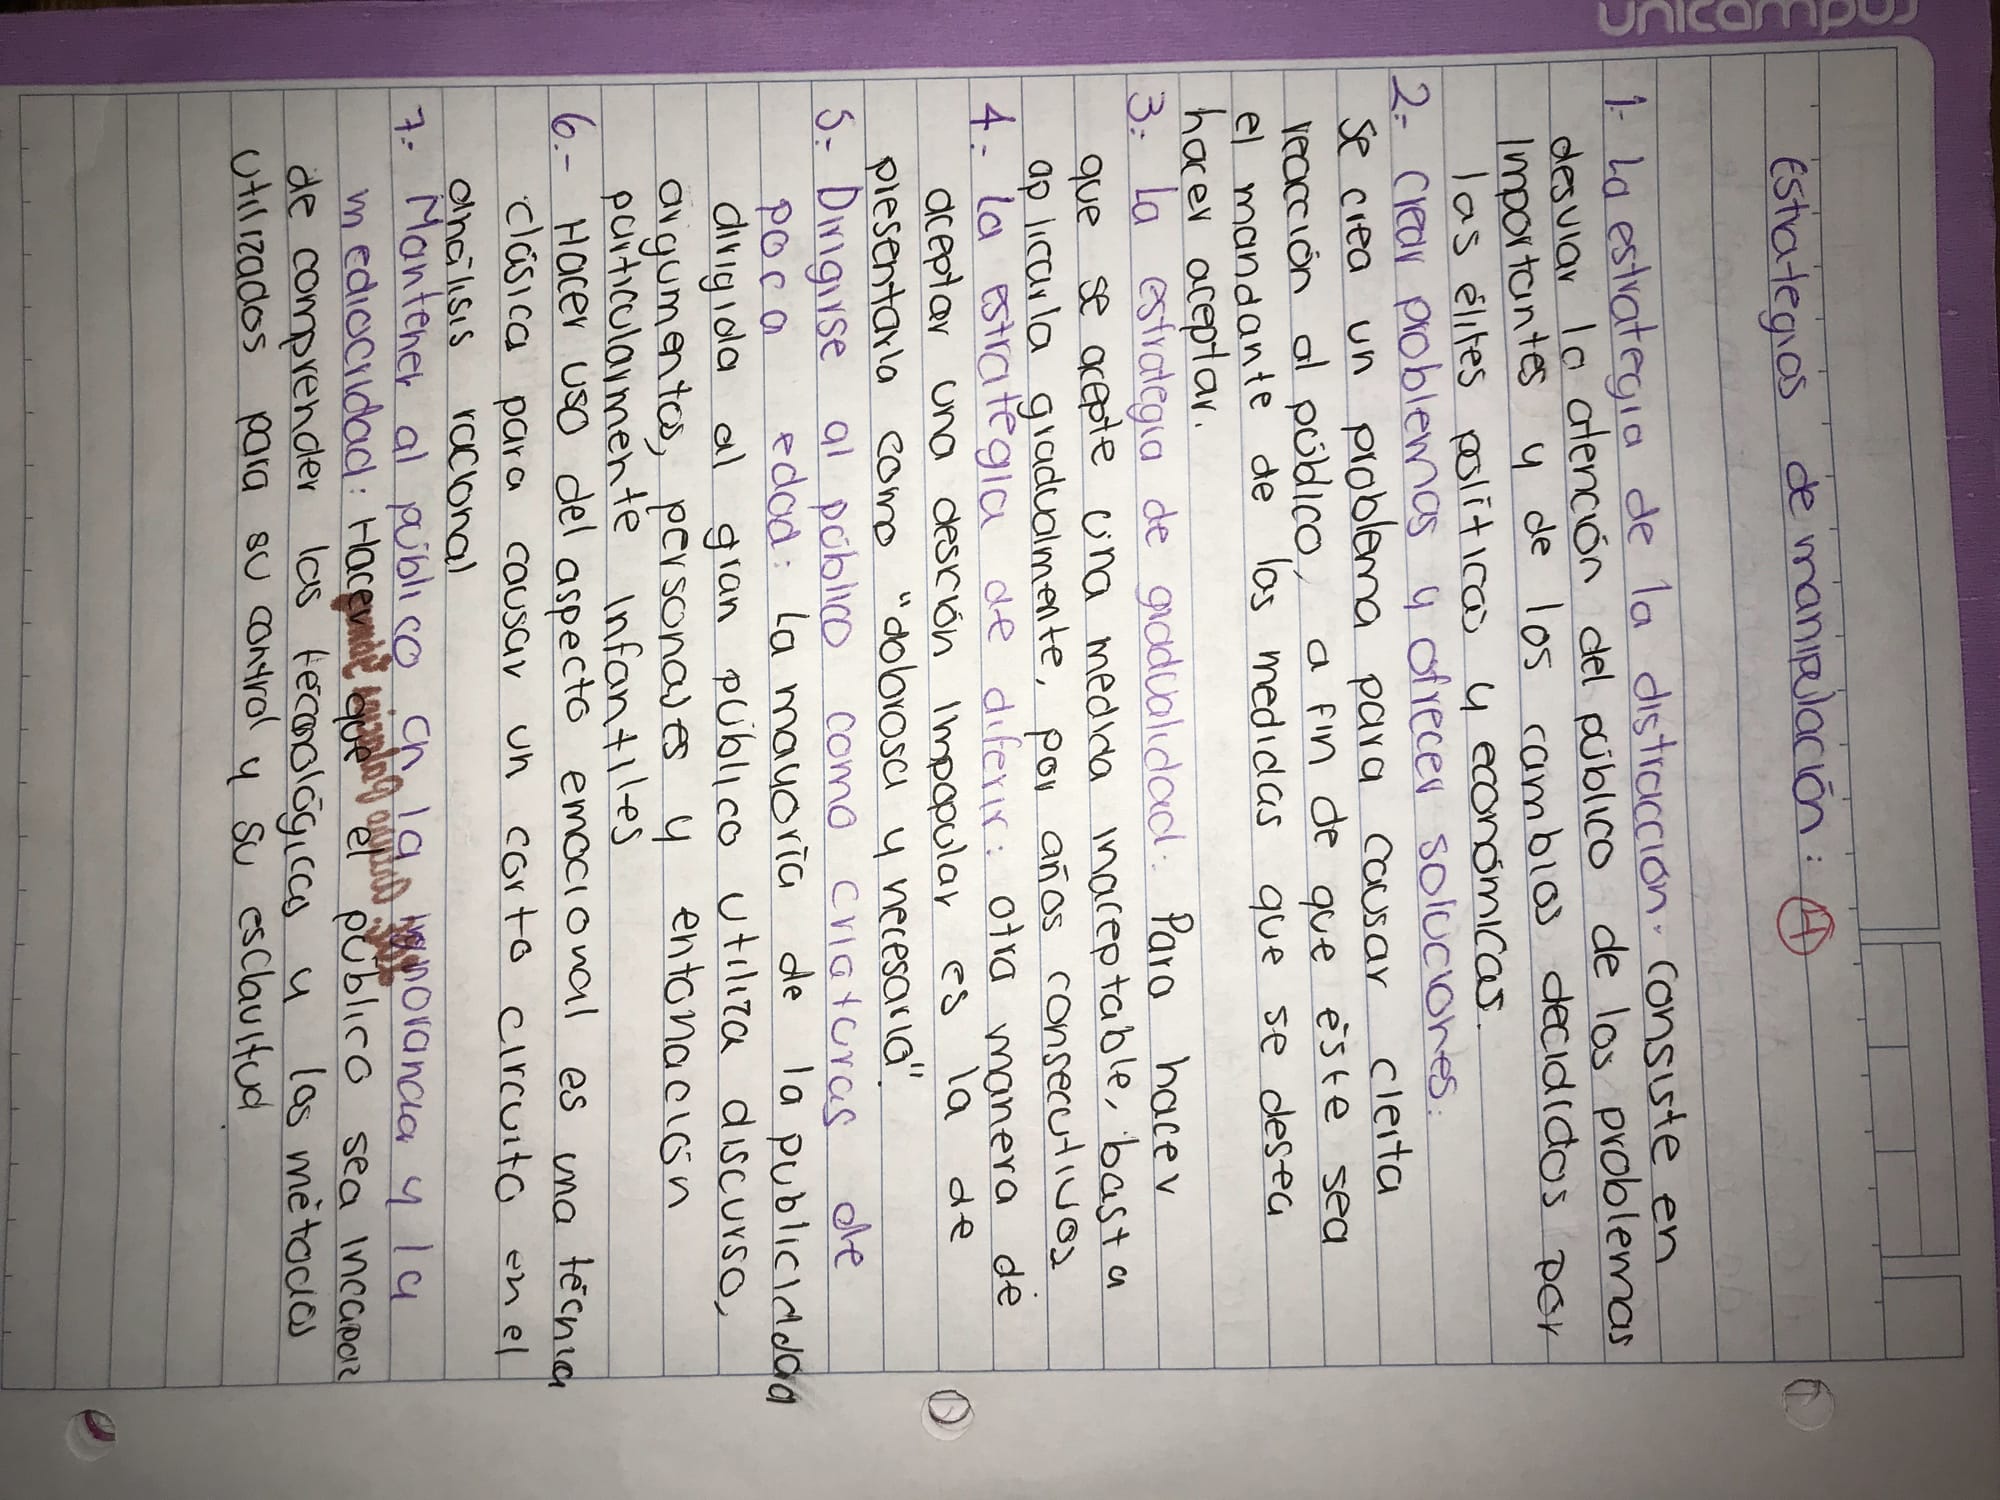 unicampus
Estrategias de manipulación: (4)
1.- La estrategia de la distracción. consiste en
desviar la atención del público de los problemas
importantes y de los cambios decididos por
las élites políticas y económicas.
2.- Crear problemas y ofrecer soluciones:
Se crea un problema para causar cierta
reacción al público, a fin de que éste sea
el mandante de las medidas que se desea
hacer aceptar.
3.- La estrategia de gradualidad: Para hacer
que se acepte una medida inaceptable, basta
aplicarla gradualmente, por años consecutivos
4.- La estrategia de diferir: otra manera de
aceptar una desición impopular es la de
presentarla como "dolorosa y necesaria".
5.- Dirigirse al público como criaturas de
poca edad: La mayoría de la publicidad
dirigida al gran público utiliza discurso,
argumentos, personajes y entonación
particularmente infantiles
6.- Hacer uso del aspecto emocional es una técnica
clásica para causar un corto circuito en el
análisis racional
7.- Mantener al público en la ignorancia y la
mediocridad: Hacer que el público sea incapaz
de comprender las técnológicas y los métodos
utilizados para su control y su esclavitud